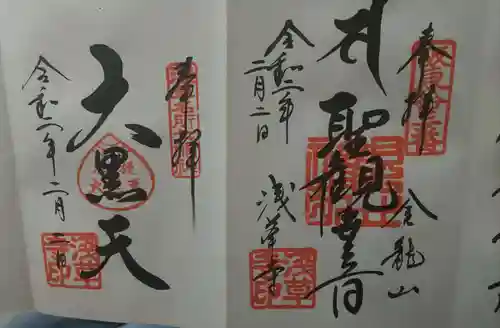 奉拝
金龍山
聖観世音
令和二年
二月二日
浅草寺
奉拝
大黒天
令和二年二月二日
浅草
寺印